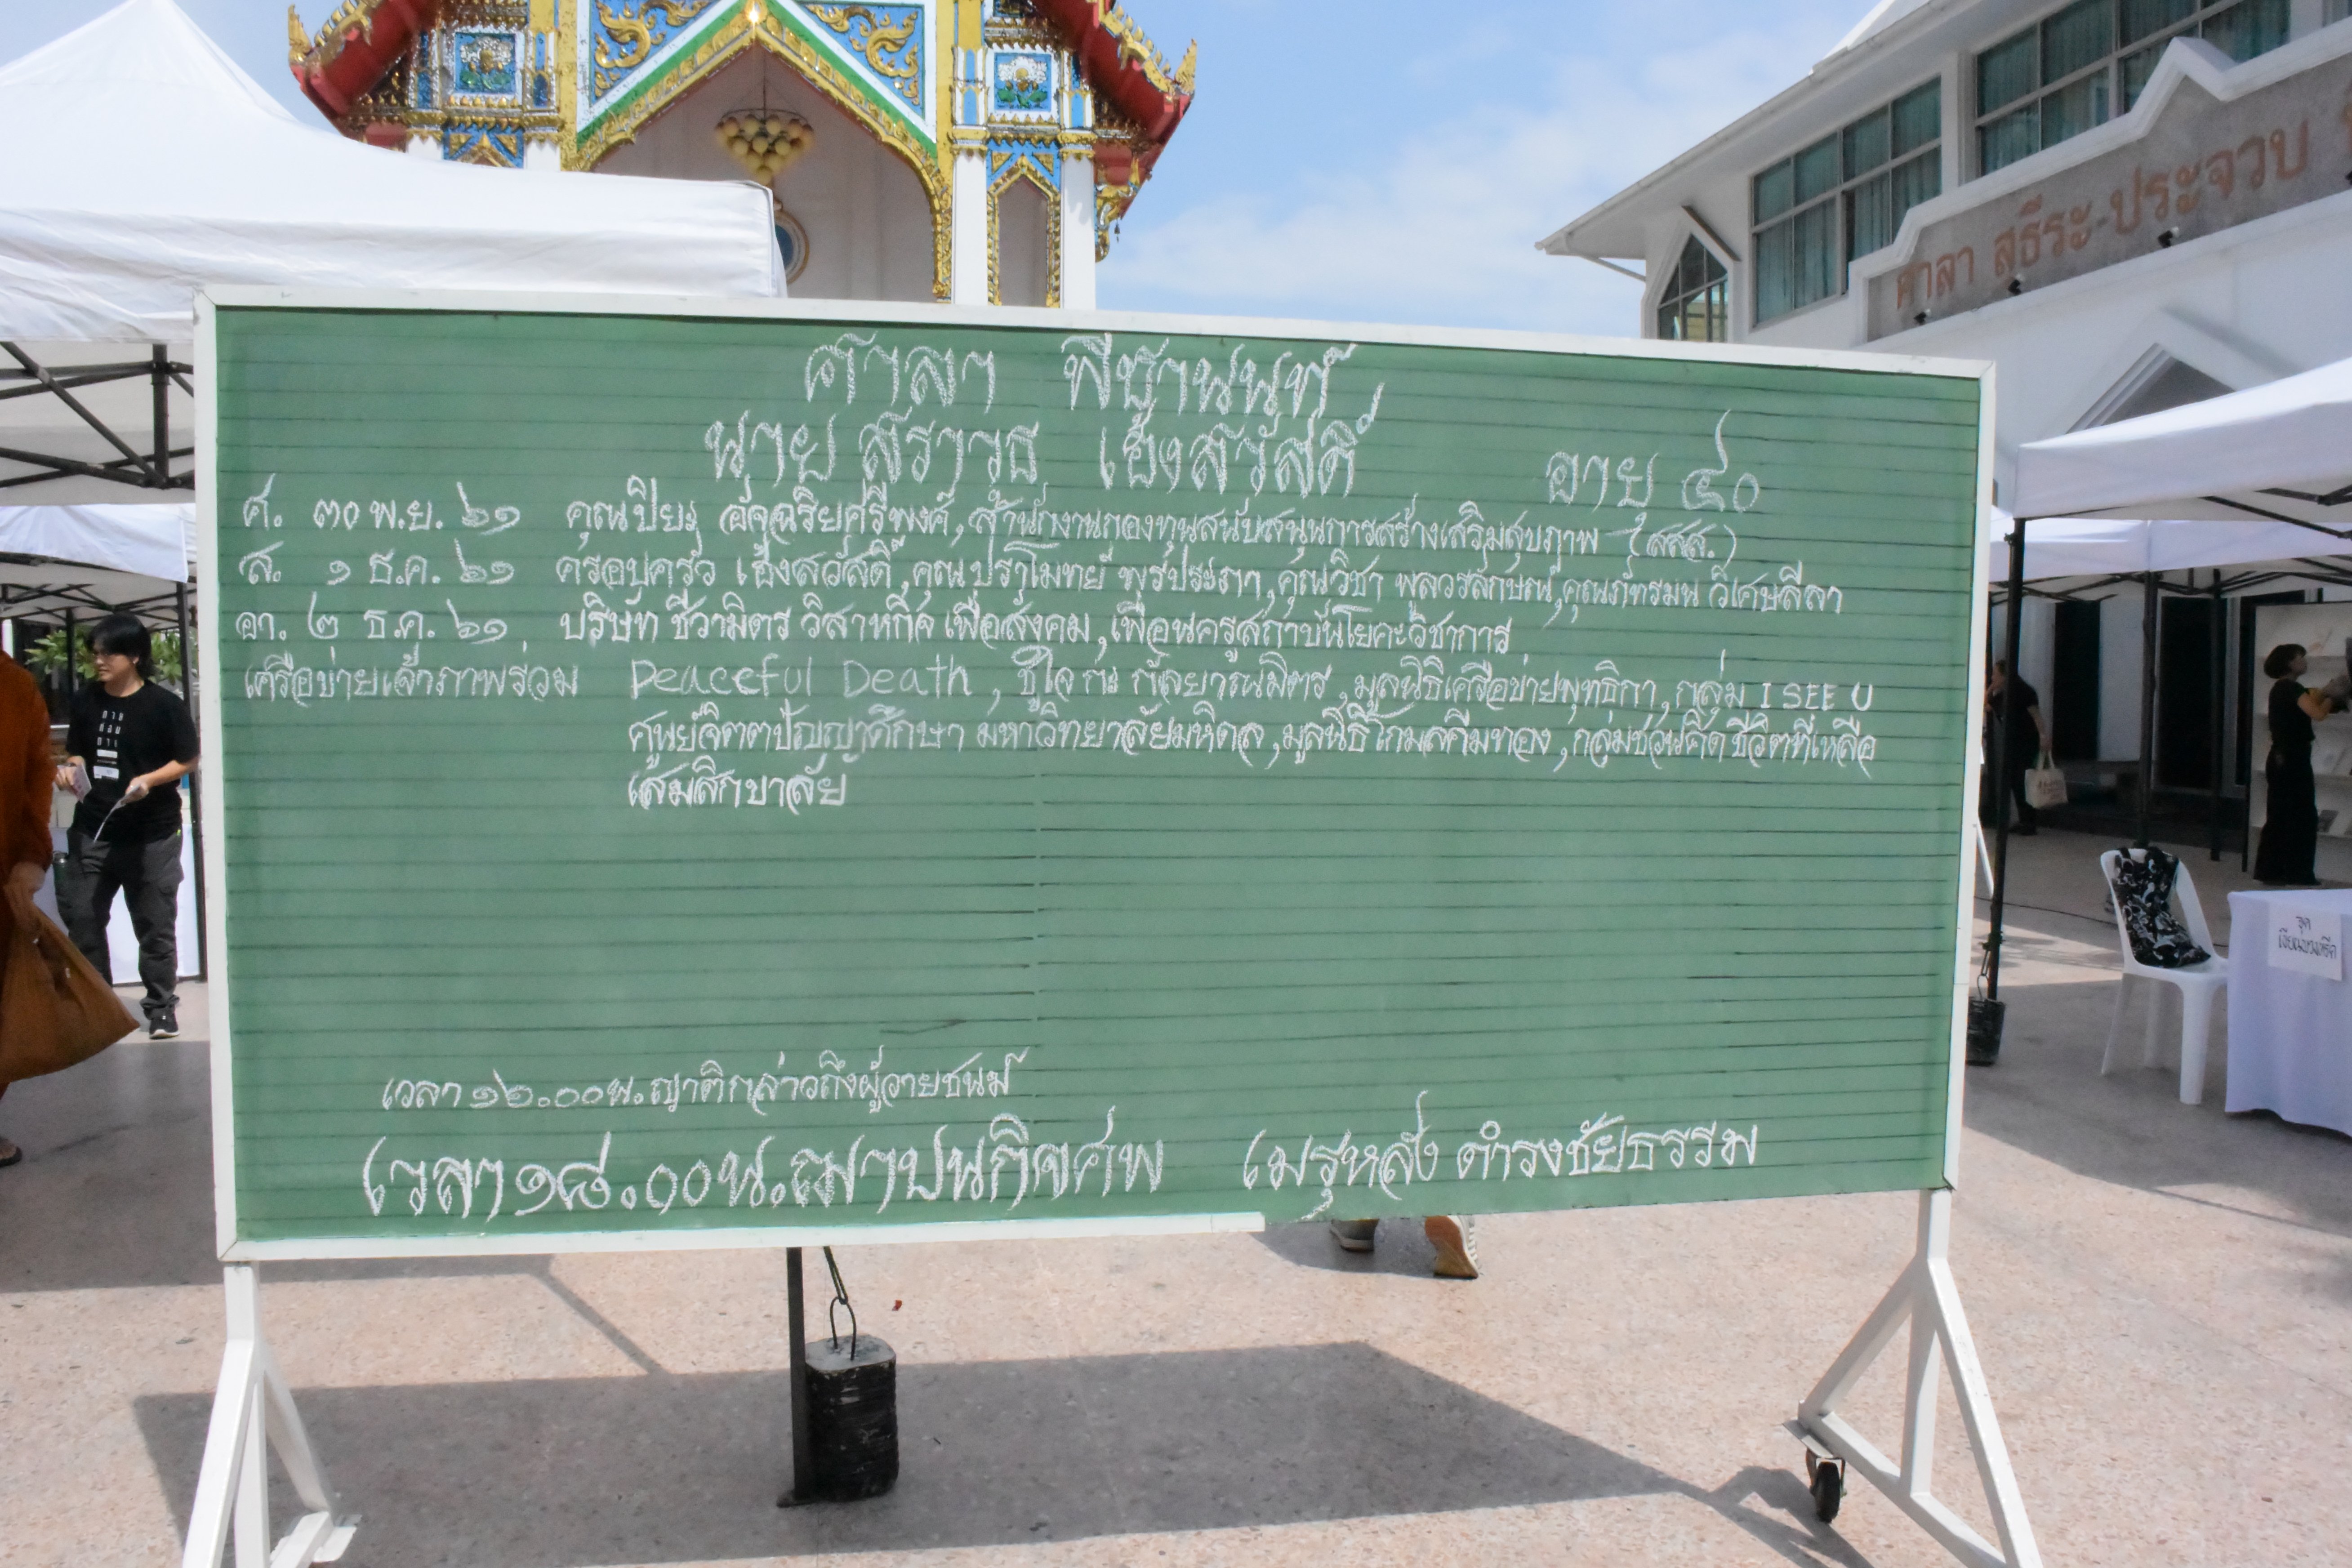 ศาลา สธีระ-ประจวบ
ศาลา พีชานนท์
นาย สราวุธ เฮ้งสวัสดิ์ อายุ ๔๐
ศ. ๓๐ พ.ย. ๖๑ คุณปิยะ อัจฉริยศรีพงศ์, สำนักงานกองทุนสนับสนุนการสร้างเสริมสุขภาพ (สสส.)
ส. ๑ ธ.ค. ๖๑ ครอบครัว เฮ้งสวัสดิ์, คุณปราโมทย์ พรประภา, คุณวิชา พูลวรลักษณ์, คุณภัทรมน วิเศษลีลา
อา. ๒ ธ.ค. ๖๑ บริษัท ชีวามิตร วิสาหกิจ เพื่อสังคม, เพื่อนครูสถาบันโยคะวิชาการ
เครือข่ายเจ้าภาพร่วม Peaceful Death, ชูใจ กะ กัลยาณมิตร, มูลนิธิเครือข่ายพุทธิกา, กลุ่ม I SEE U
ศูนย์จิตตปัญญาศึกษา มหาวิทยาลัยมหิดล, มูลนิธิโกมลคีมทอง, กลุ่มชวนคิด ชีวิตที่เหลือ
เสมสิกขาลัย
เวลา ๑๖.๐๐ น. ญาติกล่าวถึงผู้วายชนม์
เวลา ๑๘.๐๐ น. ฌาปนกิจศพ เมรุหลัง ดำรงชัยธรรม
จุด